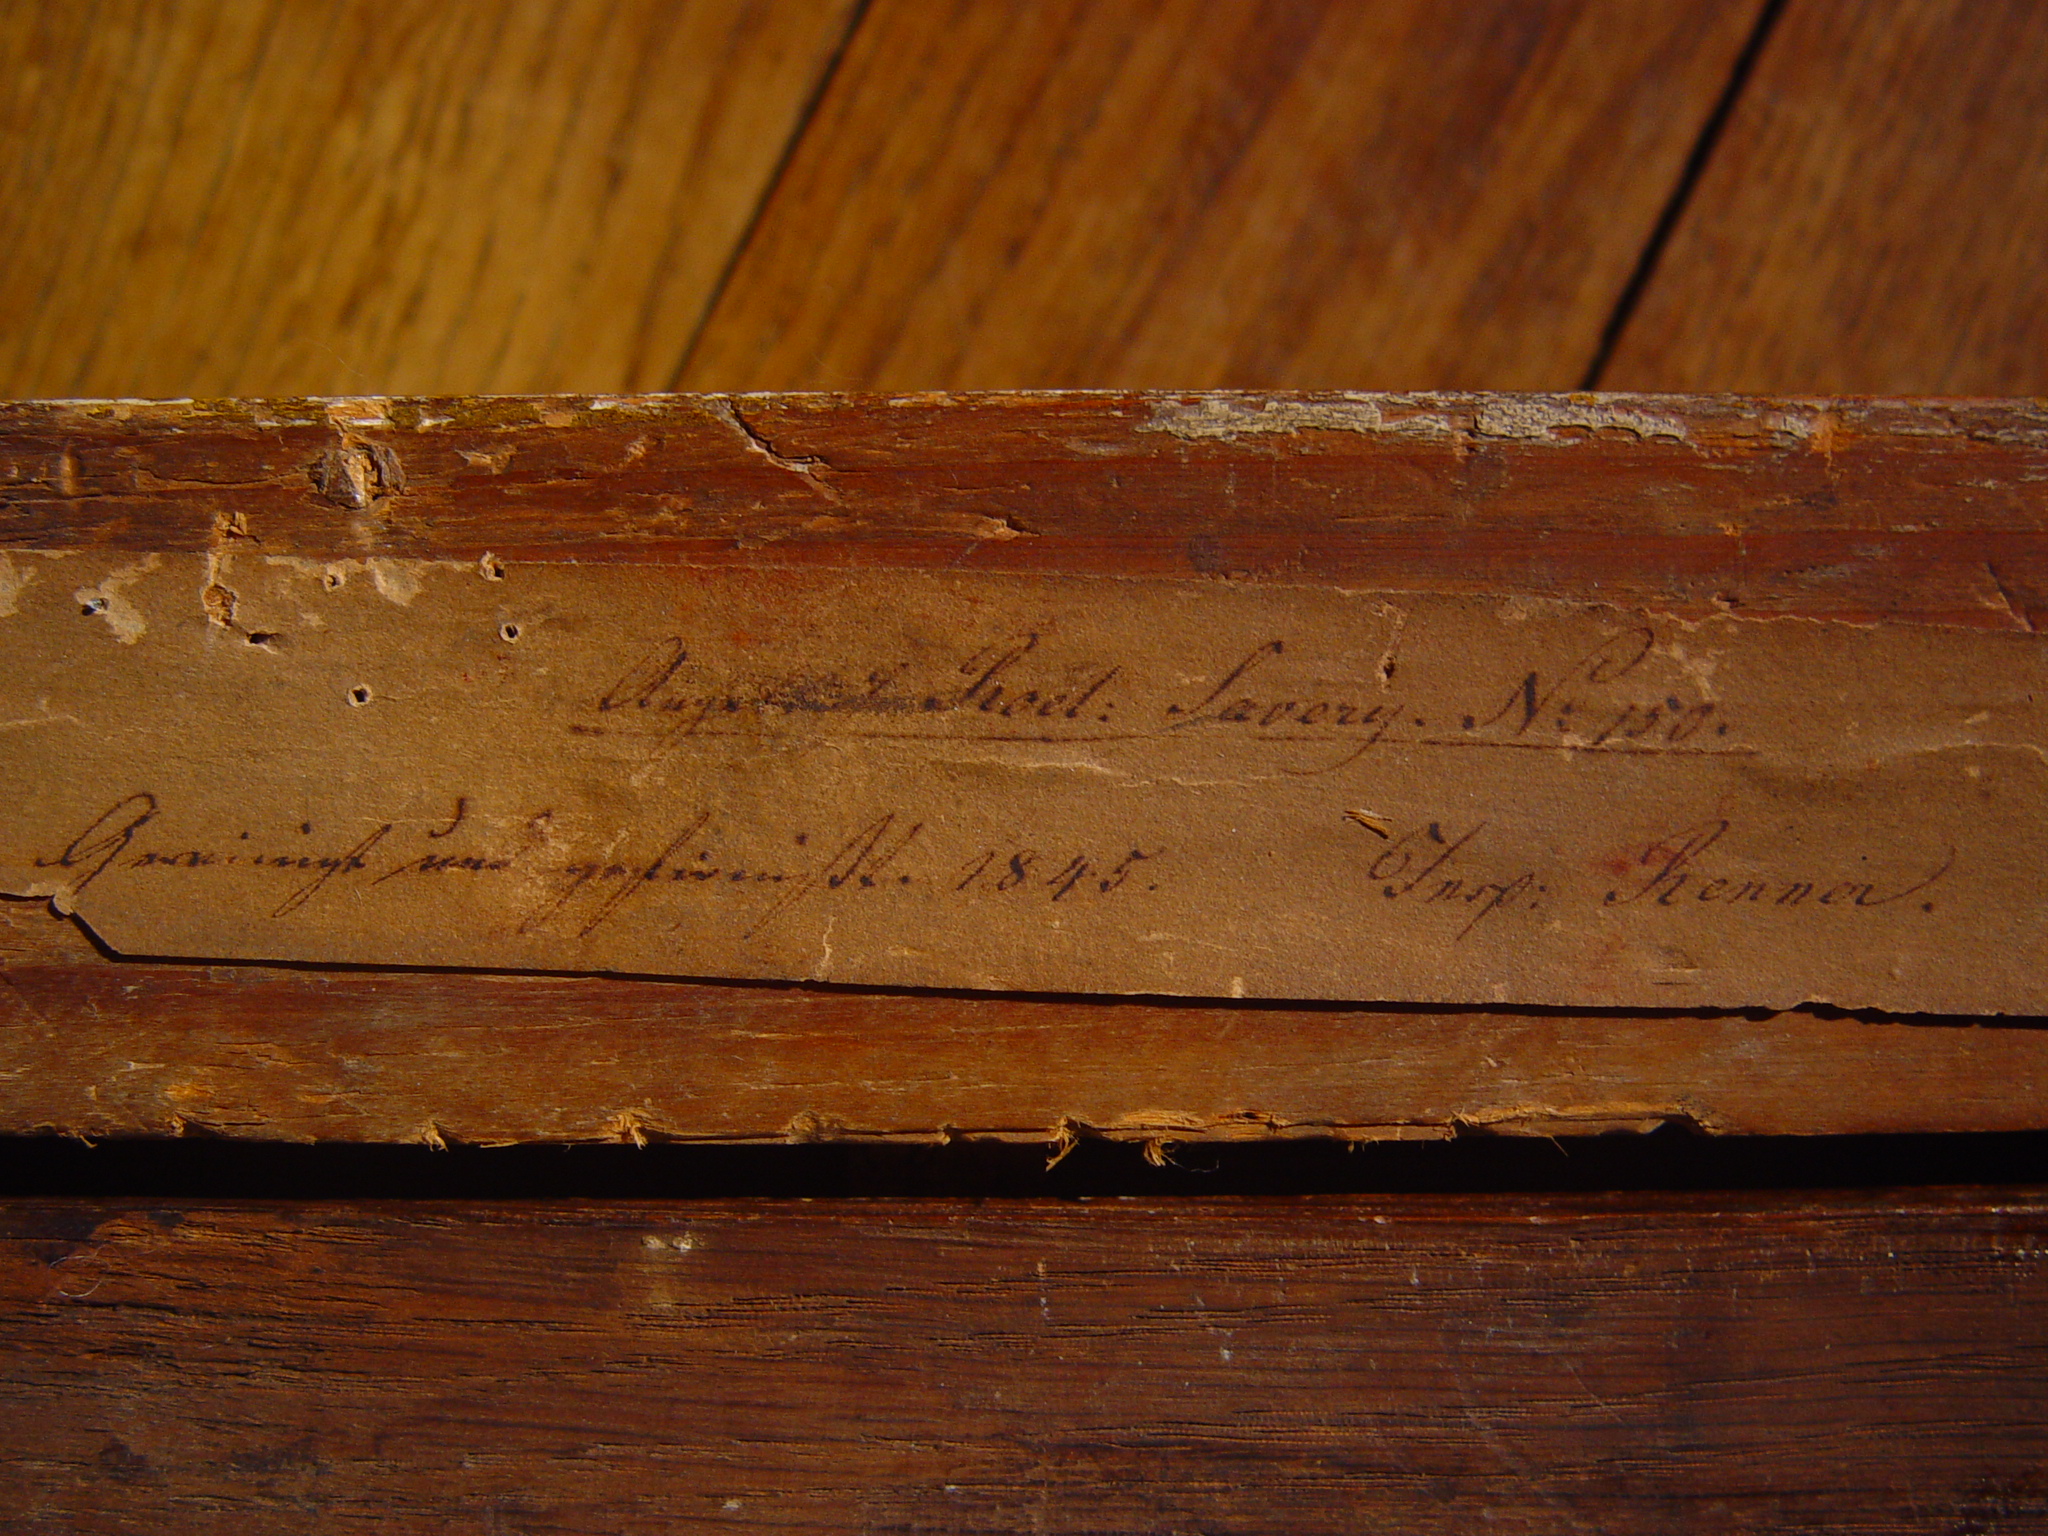 Roel: Savery. No 150.
Gereinigt und gefirnißt. 1845. Insp: Renner.